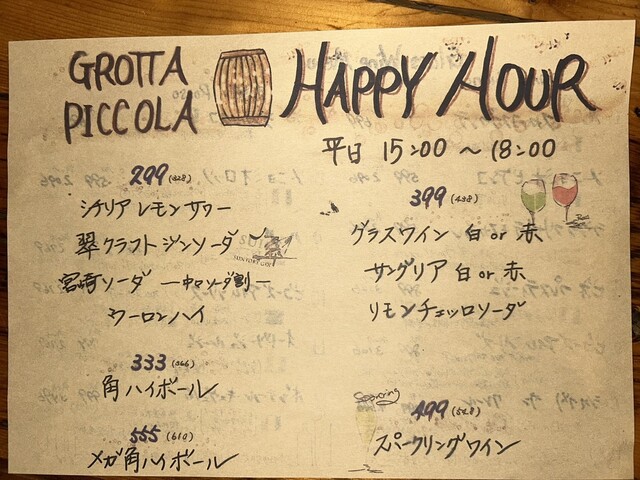 GROTTA
PICCOLA
HAPPY HOUR
平日 15:00 ～ 18:00
299 (328)
シチリアレモンサワー
翠クラフトジンソーダ
SUNTORY GIN
宮崎ソーダ
ウーロンハイ
333 (366)
角ハイボール
555 (610)
メガ角ハイボール
399 (438)
グラスワイン 白 or 赤
サングリア 白 or 赤
リモンチェッロソーダ
Sparkling
499 (548)
スパークリングワイン